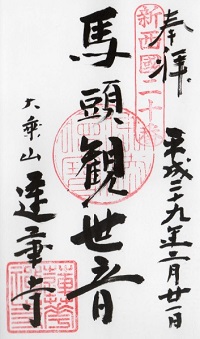 奉拝
新西國二十
平成二十九年二月廿一日
馬頭観世音
大乗山
蓮華寺
蓮華寺